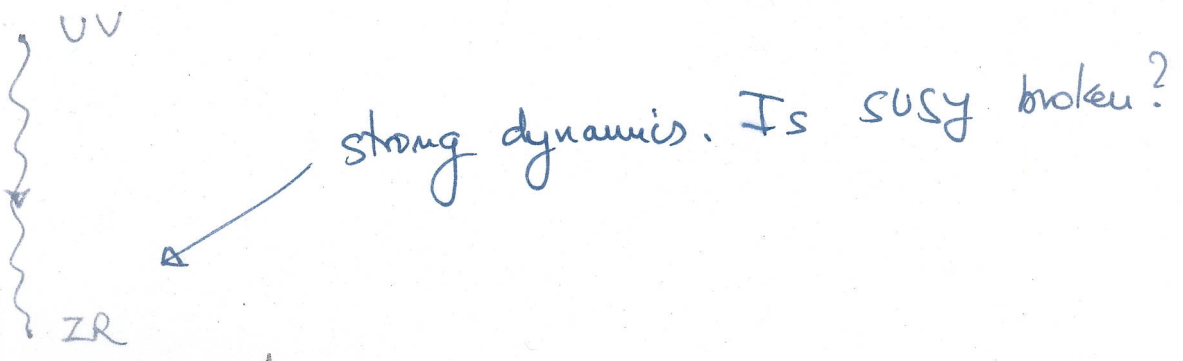 UV
strong dynamics. Is SUSY broken?
IR